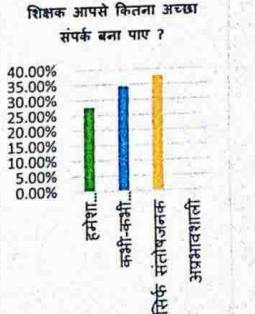 शिक्षक आपसे कितना अच्छा
संपर्क बना पाए ?
40.00%
35.00%
30.00%
25.00%
20.00%
15.00%
10.00%
5.00%
0.00%
हमेशा...
कभी-कभी...
सिर्फ संतोषजनक
अप्रभावशाली